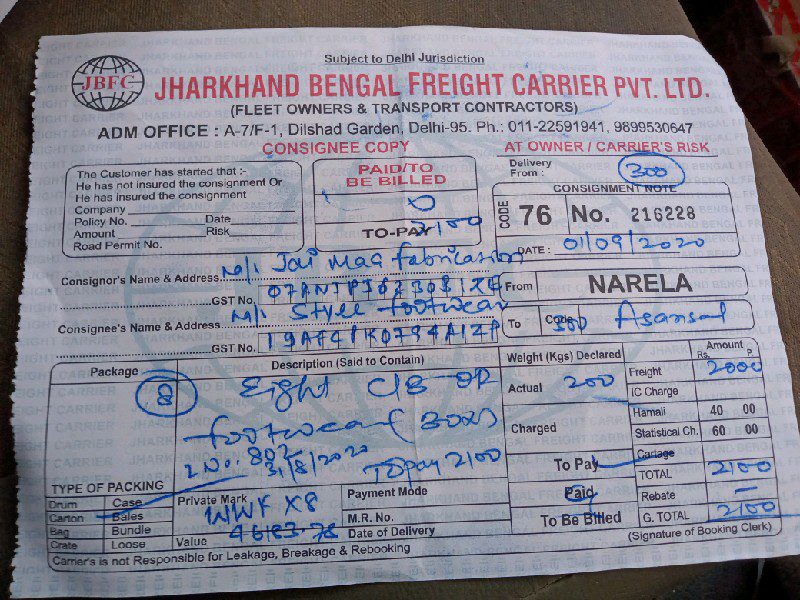 Subject to Delhi Jurisdiction
JBFC
JHARKHAND BENGAL FREIGHT CARRIER PVT. LTD.
(FLEET OWNERS & TRANSPORT CONTRACTORS)
ADM OFFICE : A-7/F-1, Dilshad Garden, Delhi-95. Ph.: 011-22591941, 9899530647
CONSIGNEE COPY
AT OWNER / CARRIER'S RISK
The Customer has started that :-
He has not insured the consignment Or
He has insured the consignment
Company
Policy No. Date
Amount Risk
Road Permit No.
PAID/TO
BE BILLED
TO-PAY 2100
Delivery
From : 300
CONSIGNMENT NOTE
CODE 76 No. 216228
DATE : 01/09/2020
Consignor's Name & Address M/s Jai Maa fabrication
GST No.
From NARELA
Consignee's Name & Address M/s Style footwear
GST No.
To Code 300 Asansol
Package
8
Description (Said to Contain)
Eight C/B OR
footwear
31/8/2020
Topay 2100
Weight (Kgs) Declared
Actual 200
Charged
To Pay
Paid
To Be Billed
Amount
Rs. P.
Freight 2000
IC Charge
Hamali 40 00
Statistical Ch. 60 00
Cartage
TOTAL 2100
Rebate —
G. TOTAL 2100
TYPE OF PACKING
Drum Case
Carton Bales
Bag Bundle
Crate Loose
Private Mark WWF X8
Value 46183.78
Payment Mode
M.R. No.
Date of Delivery
(Signature of Booking Clerk)
Carrer's is not Responsible for Leakage, Breakage & Rebooking